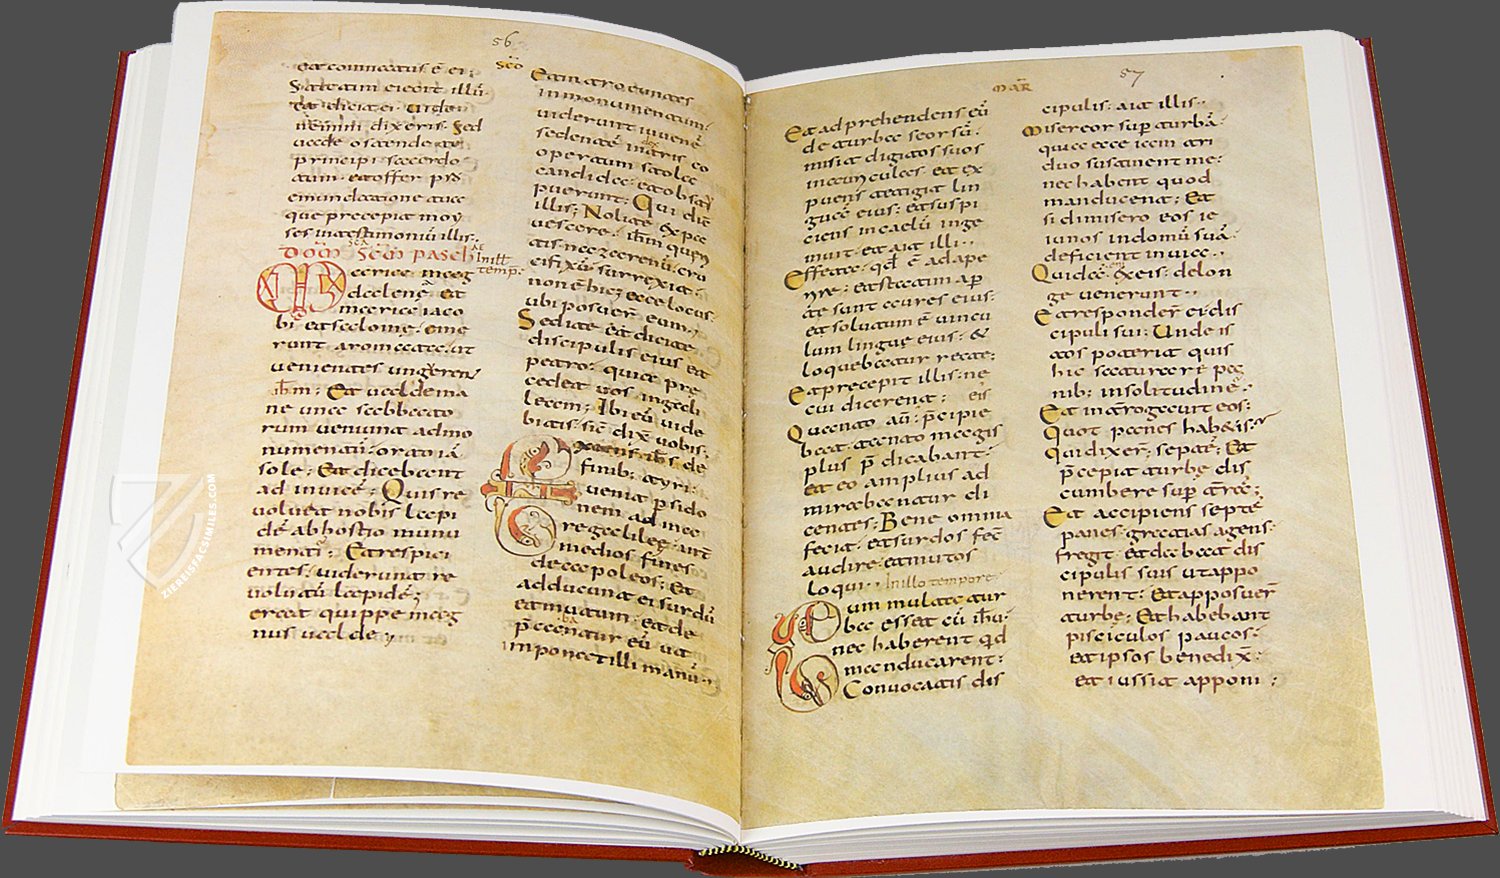 56
scō
et comminatus ē ei
Statim eiecit illū
et dicit ei· Uide
nemini dixeris· Sed
uade ostende te
principi sacerdo
tum· et offer pro
emundatione tua
que precepit moy
ses in testimoniū illis·
DOM SCM PASCH
In illo tempr
Maria mag
dalene et
maria iaco
bi et salome· eme
runt aromata· ut
uenientes ungeren
ihm· Et ualde ma
ne una sabbato
rum ueniunt ad mo
numentū· orto iā
sole· Et dicebant
ad inuicē· Quis re
uoluet nobis lapi
dē ab hostio monu
menti· Et respici
entes· uiderunt re
uolutū lapidē·
erat quippe mag
nus ualde·
Et introeuntes
in monumentum·
uiderunt iuuenē
sedentē in dextris co
opertum stola
candida· et obstu
puerunt· Qui dic̄
illis· Nolite expa
uescere· ihm quęri
tis nazarenū· cru
cifixū· surrexit·
non ē hic· ecce locus·
ubi posuer̄ eum·
Sed ite et dicite
discipulis eius et
petro· quia pre
cedet uos in gali
leam· Ibi eū uide
bitis· sic̄ dix̄ uobis·
Exiens ihs de
finib; tyri·
uenit p sido
nem ad mare
galileę· int̄
medios fines
decapoleos· Et
adducunt ei surdū
et mutum· et de
p̄cantur eū ut
imponat illi manū·
MAR̄
57
Et adprehendens eū
de turba seorsū·
misit digitos suos
in auriculas· et ex
puens tetigit lin
guā eius· et suspi
ciens in caelū inge
muit· et ait illi··
Effeta· qd ē adape
rire· et statim ap
te sunt aures eius·
et solutum ē uincu
lum lingue eius· &
loquebatur recte·
Et precepit illis· ne
cui dicerent· eis
Quanto aū· p̄cipie
bat tanto magis
plus p̄dicabant·
et eo amplius ad
mirabantur di
centes· Bene omnia
fecit· et surdos fec̄
audire· et mutos
loqui·· In illo tempore
Cum multa tur
ba esset cū ihu·
nec haberent qd
manducarent·
Conuocatis dis
cipulis· ait illis··
Misereor sup turbā·
quia ecce iam tri
duo sustinent me·
nec habent quod
manducent· Et
si dimisero eos ie
iunos in domū suā·
deficient in uia··
Quidā ex eis· de lon
ge uenerunt··
Et responder̄ ei dis
cipuli sui· Unde is
tos poterit quis
hic saturare pa
nib; in solitudine·
Et interrogauit eos·
Quot panes habetis·
Qui dixer̄· septē· Et
p̄cepit turbe dis
cumbere sup terrā·
Et accipiens septē
panes· gratias agens·
fregit· et dabat dis
cipulis suis ut appo
nerent· Et apposuer̄
turbe· Et habebant
pisciculos paucos·
et ipsos benedix̄·
et iussit apponi·
ZIEREISFACSIMILES.COM